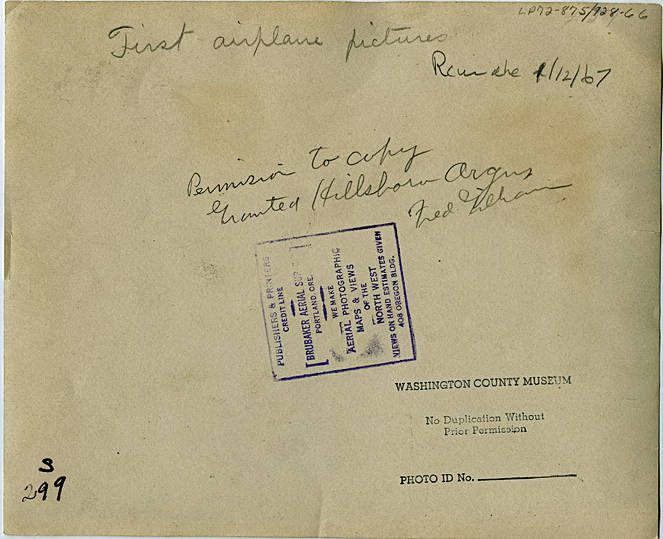 LP72-875/728-66
First airplane pictures
1/12/67
Permission to copy
Granted Hillsboro Argus
Fred
PUBLISHERS & PRINTERS
CREDIT LINE
[BRUBAKER AERIAL SUR ]
PORTLAND, ORE.
WE MAKE
AERIAL PHOTOGRAPHIC
MAPS & VIEWS
OF THE
NORTH WEST
VIEWS ON HAND ESTIMATES GIVEN
408 OREGON BLDG.
WASHINGTON COUNTY MUSEUM
No Duplication Without
Prior Permission
PHOTO ID No.
S
299